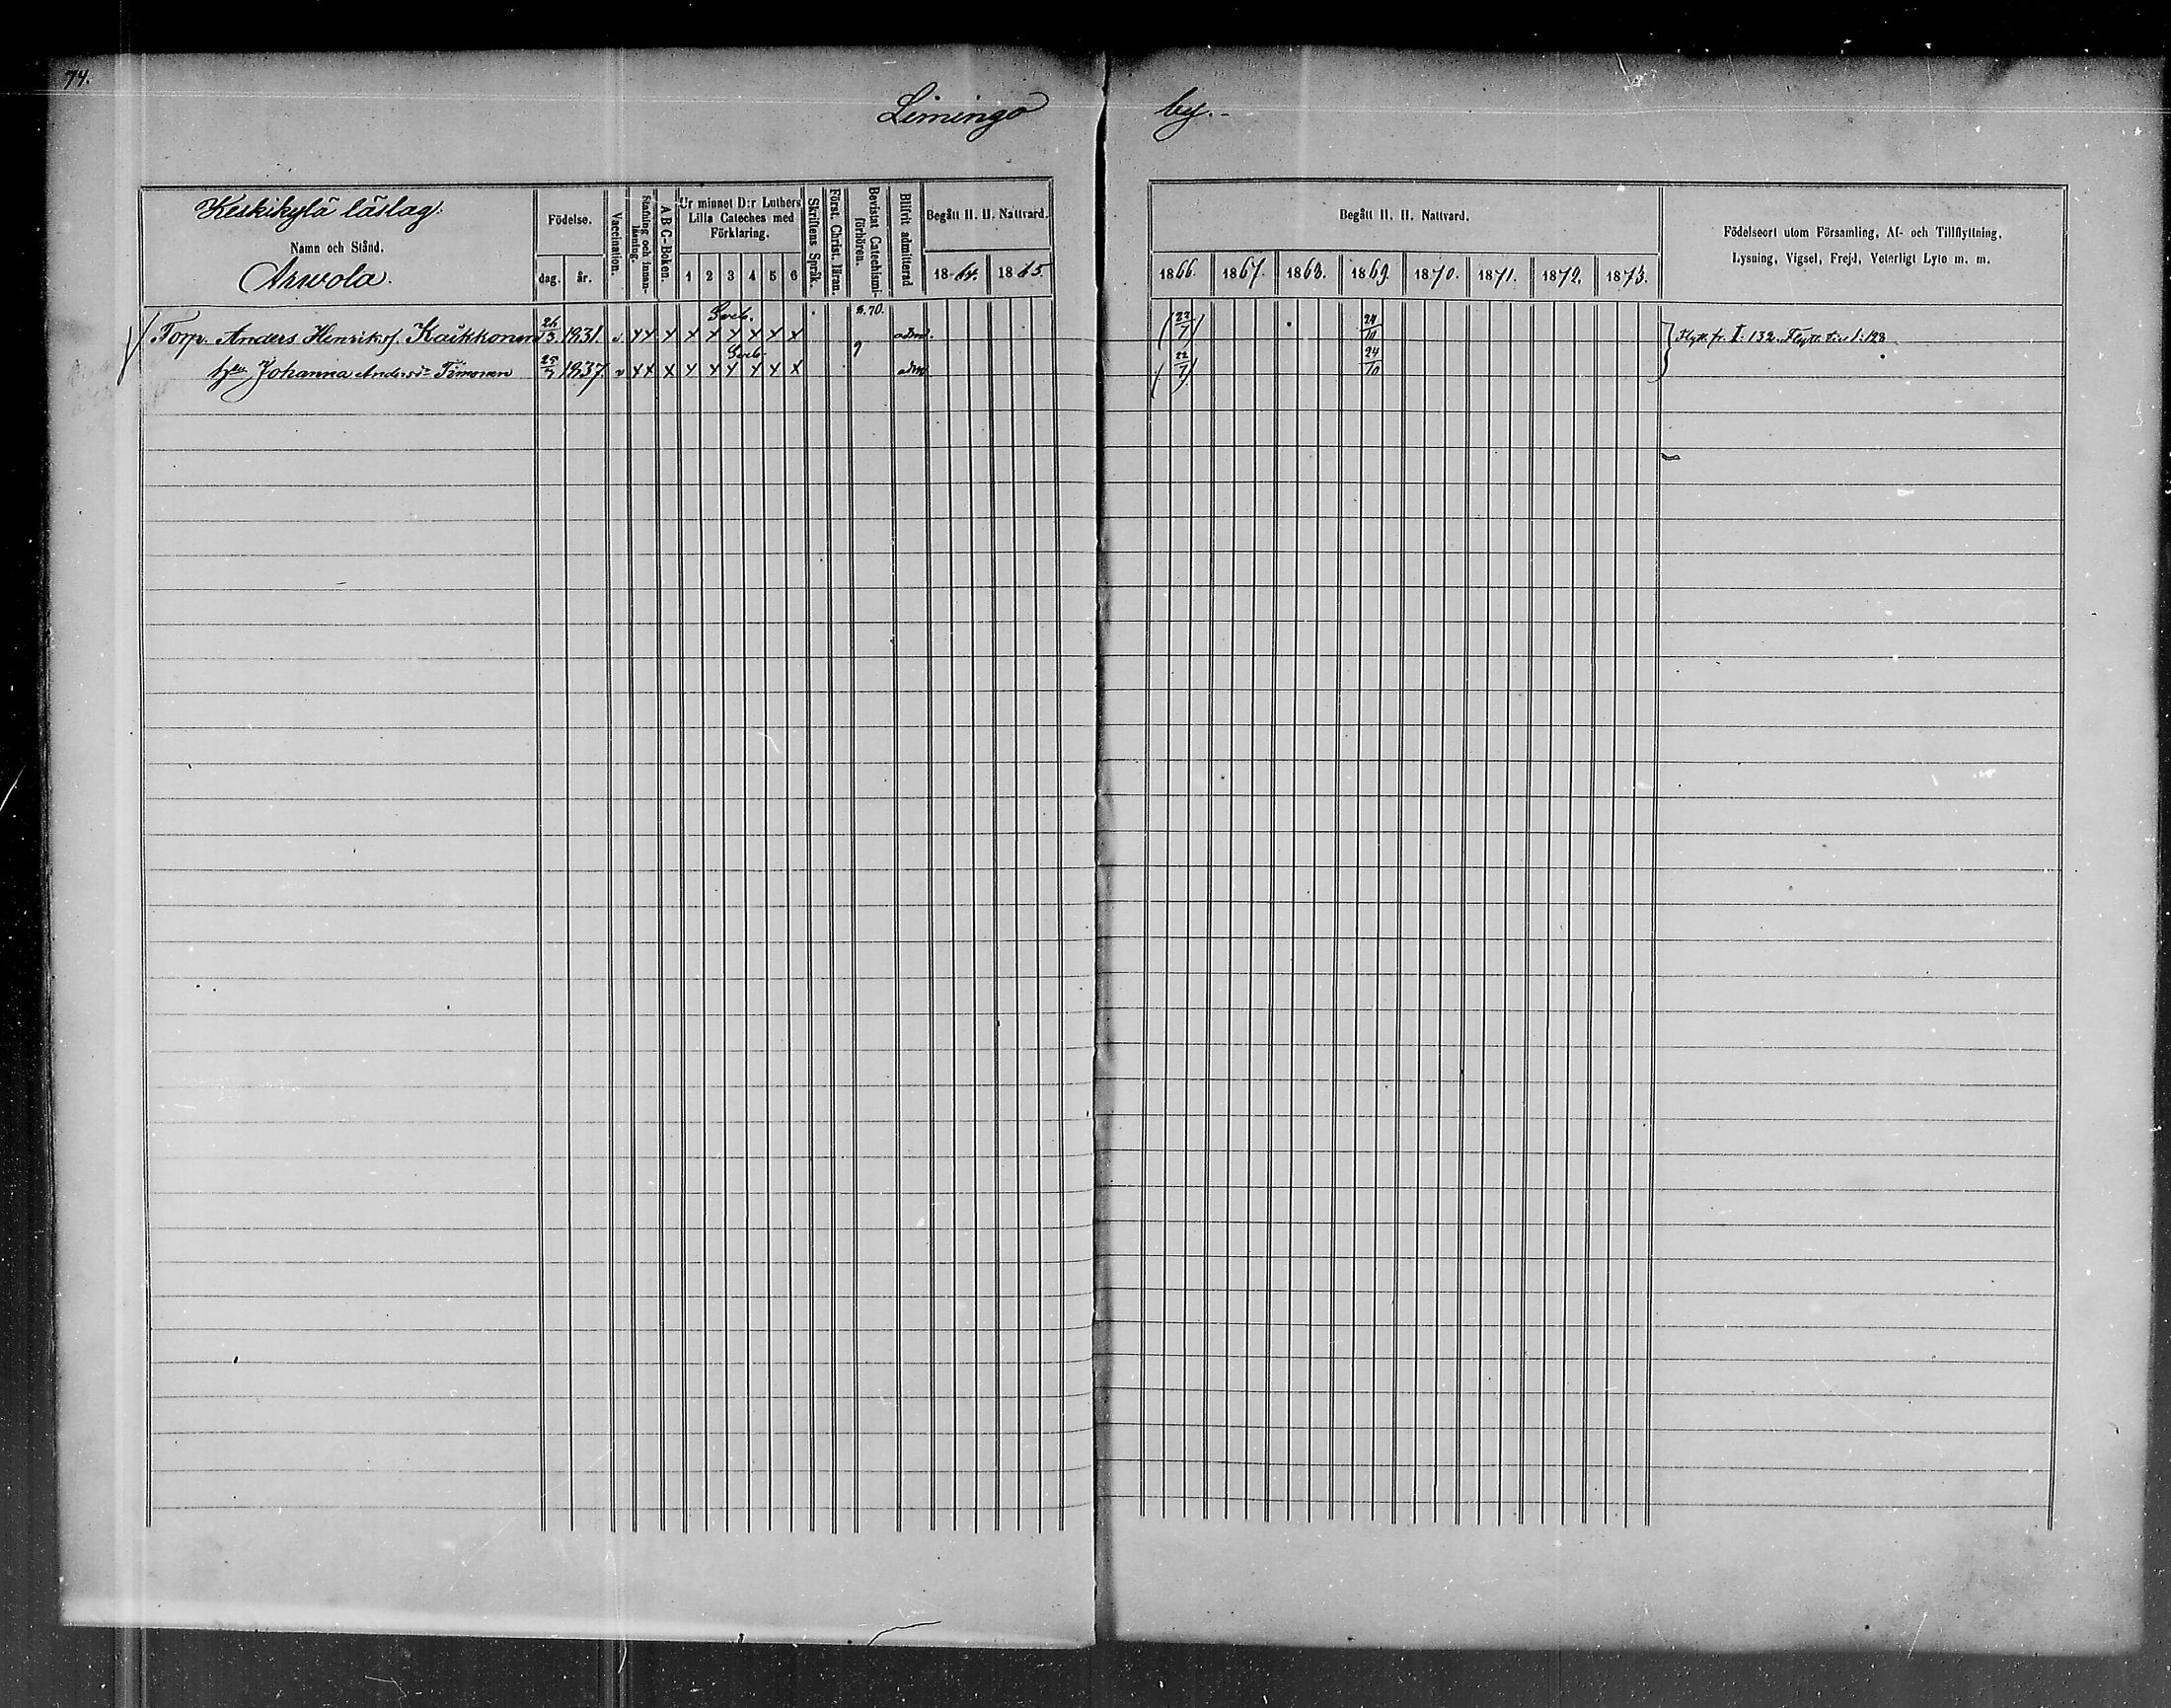 74.
Limingo by.
Keskikylä läslag.
Namn och Stånd.
Arwola.
Födelse.
dag. år.
Vaccination.
Stafning och innan-läsning.
A B C-Boken.
Ur minnet D:r Luthers
Lilla Cateches med
Förklaring.
1 2 3 4 5 6
Skriftens Språk.
Först. Christ. läran.
Bevistat Catechismi-förhören.
Blifvit admitterad
Begått H. H. Nattvard.
1864. 1865.
Begått H. H. Nattvard.
1866. 1867. 1868. 1869. 1870. 1871. 1872. 1873.
Födelseort utom Församling, Af- och Tillflyttning,
Lysning, Vigsel, Frejd, Veterligt Lyte m. m.
8.70.
Torp. Anders Henriksf. Kaikkonen 26/3 1831. v xx x x x x x x x adm. (22/7) 24/10 Flytt. fr. I: 132. Flytt. till I: 128
9
Johanna Andersd:r Timonen 25/7 1837. v xx x x x x x x x adm (22/7) 24/10